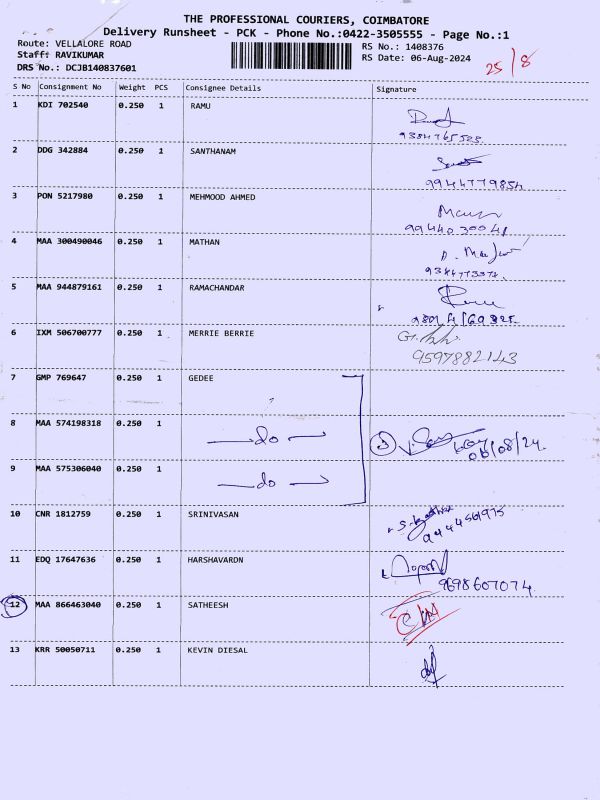 THE PROFESSIONAL COURIERS, COIMBATORE
Delivery Runsheet - PCK - Phone No.:0422-3505555 - Page No.:1
Route: VELLALORE ROAD
Staff: RAVIKUMAR
DRS No.: DCJB140837601
RS No.: 1408376
RS Date: 06-Aug-2024
25/8
S No Consignment No Weight PCS Consignee Details Signature
1 KDI 702540 0.250 1 RAMU
2 DDG 342884 0.250 1 SANTHANAM
9944779854
3 PON 5217980 0.250 1 MEHMOOD AHMED
9944030041
4 MAA 300490046 0.250 1 MATHAN
5 MAA 944879161 0.250 1 RAMACHANDAR
6 IXM 506700777 0.250 1 MERRIE BERRIE
9597882143
7 GMP 769647 0.250 1 GEDEE
8 MAA 574198318 0.250 1 —do— 3 06/08/24
9 MAA 575306040 0.250 1 —do—
10 CNR 1812759 0.250 1 SRINIVASAN
11 EDQ 17647636 0.250 1 HARSHAVARDN
9698607074
12 MAA 866463040 0.250 1 SATHEESH
13 KRR 50050711 0.250 1 KEVIN DIESAL